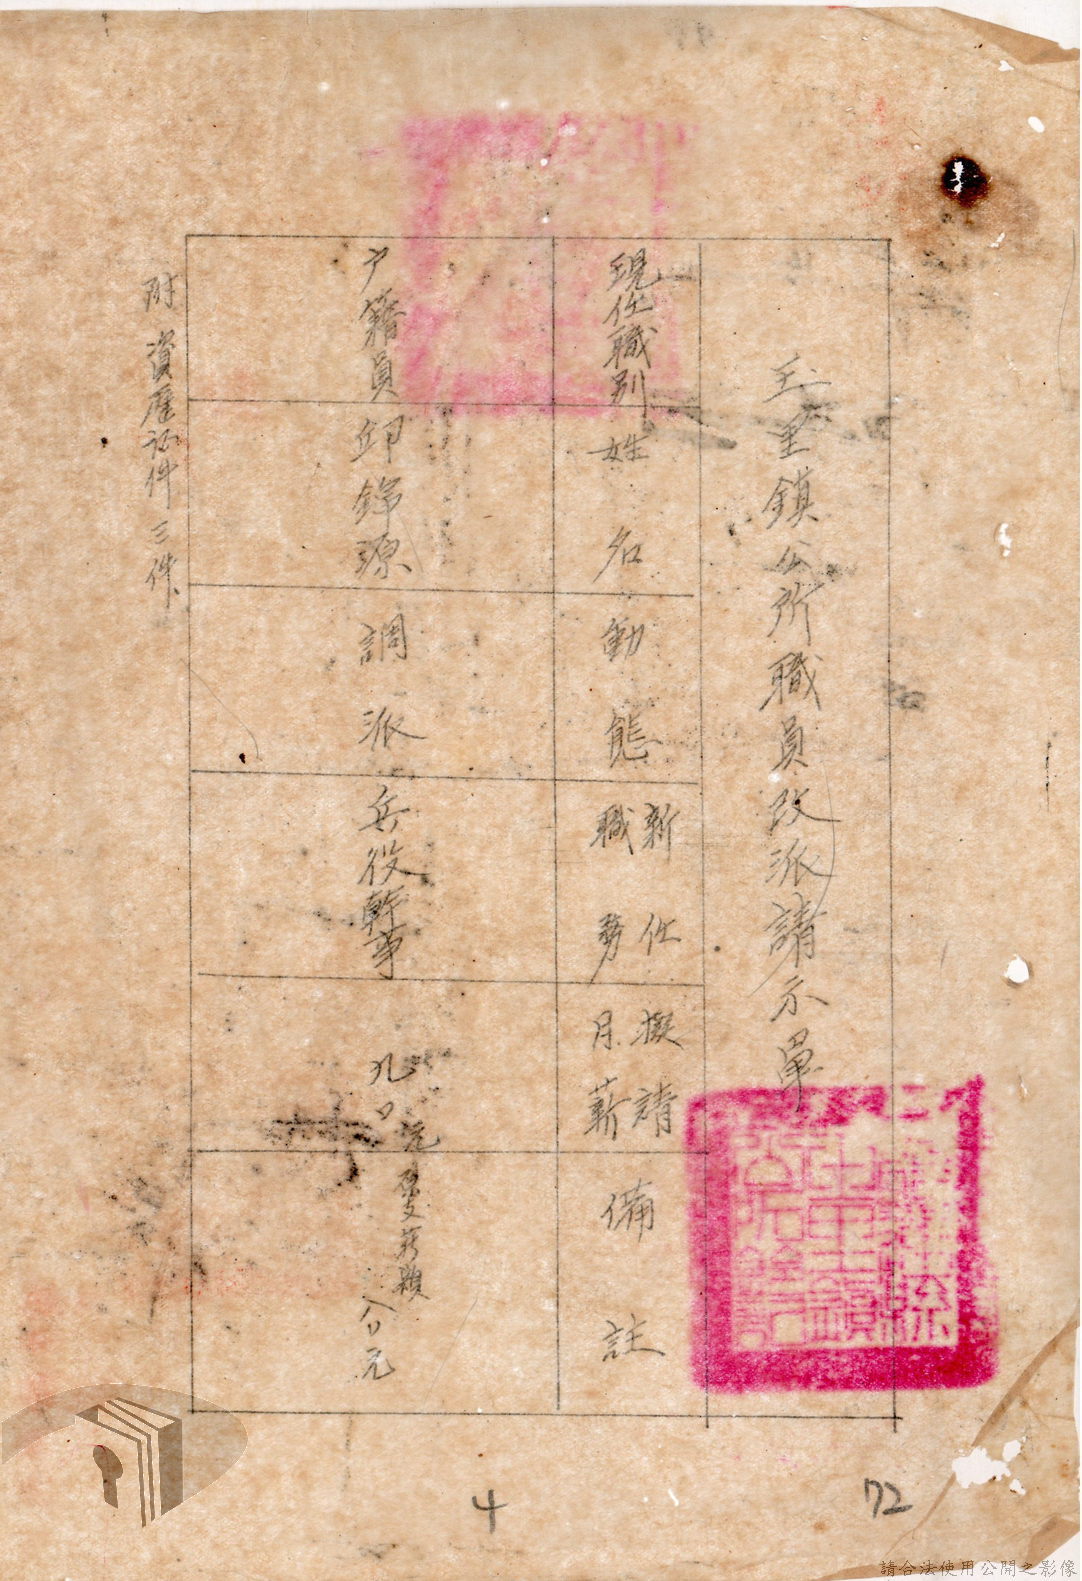 玉里鎮公所職員改派請示單
現任職別
姓名
動態
新任
職務
擬請
月薪
備註
戶籍員
邱錦源
調派
兵役幹事
九〇元
原支薪額
八〇元
附資歷证件三件
4
72
請合法使用公開之影像